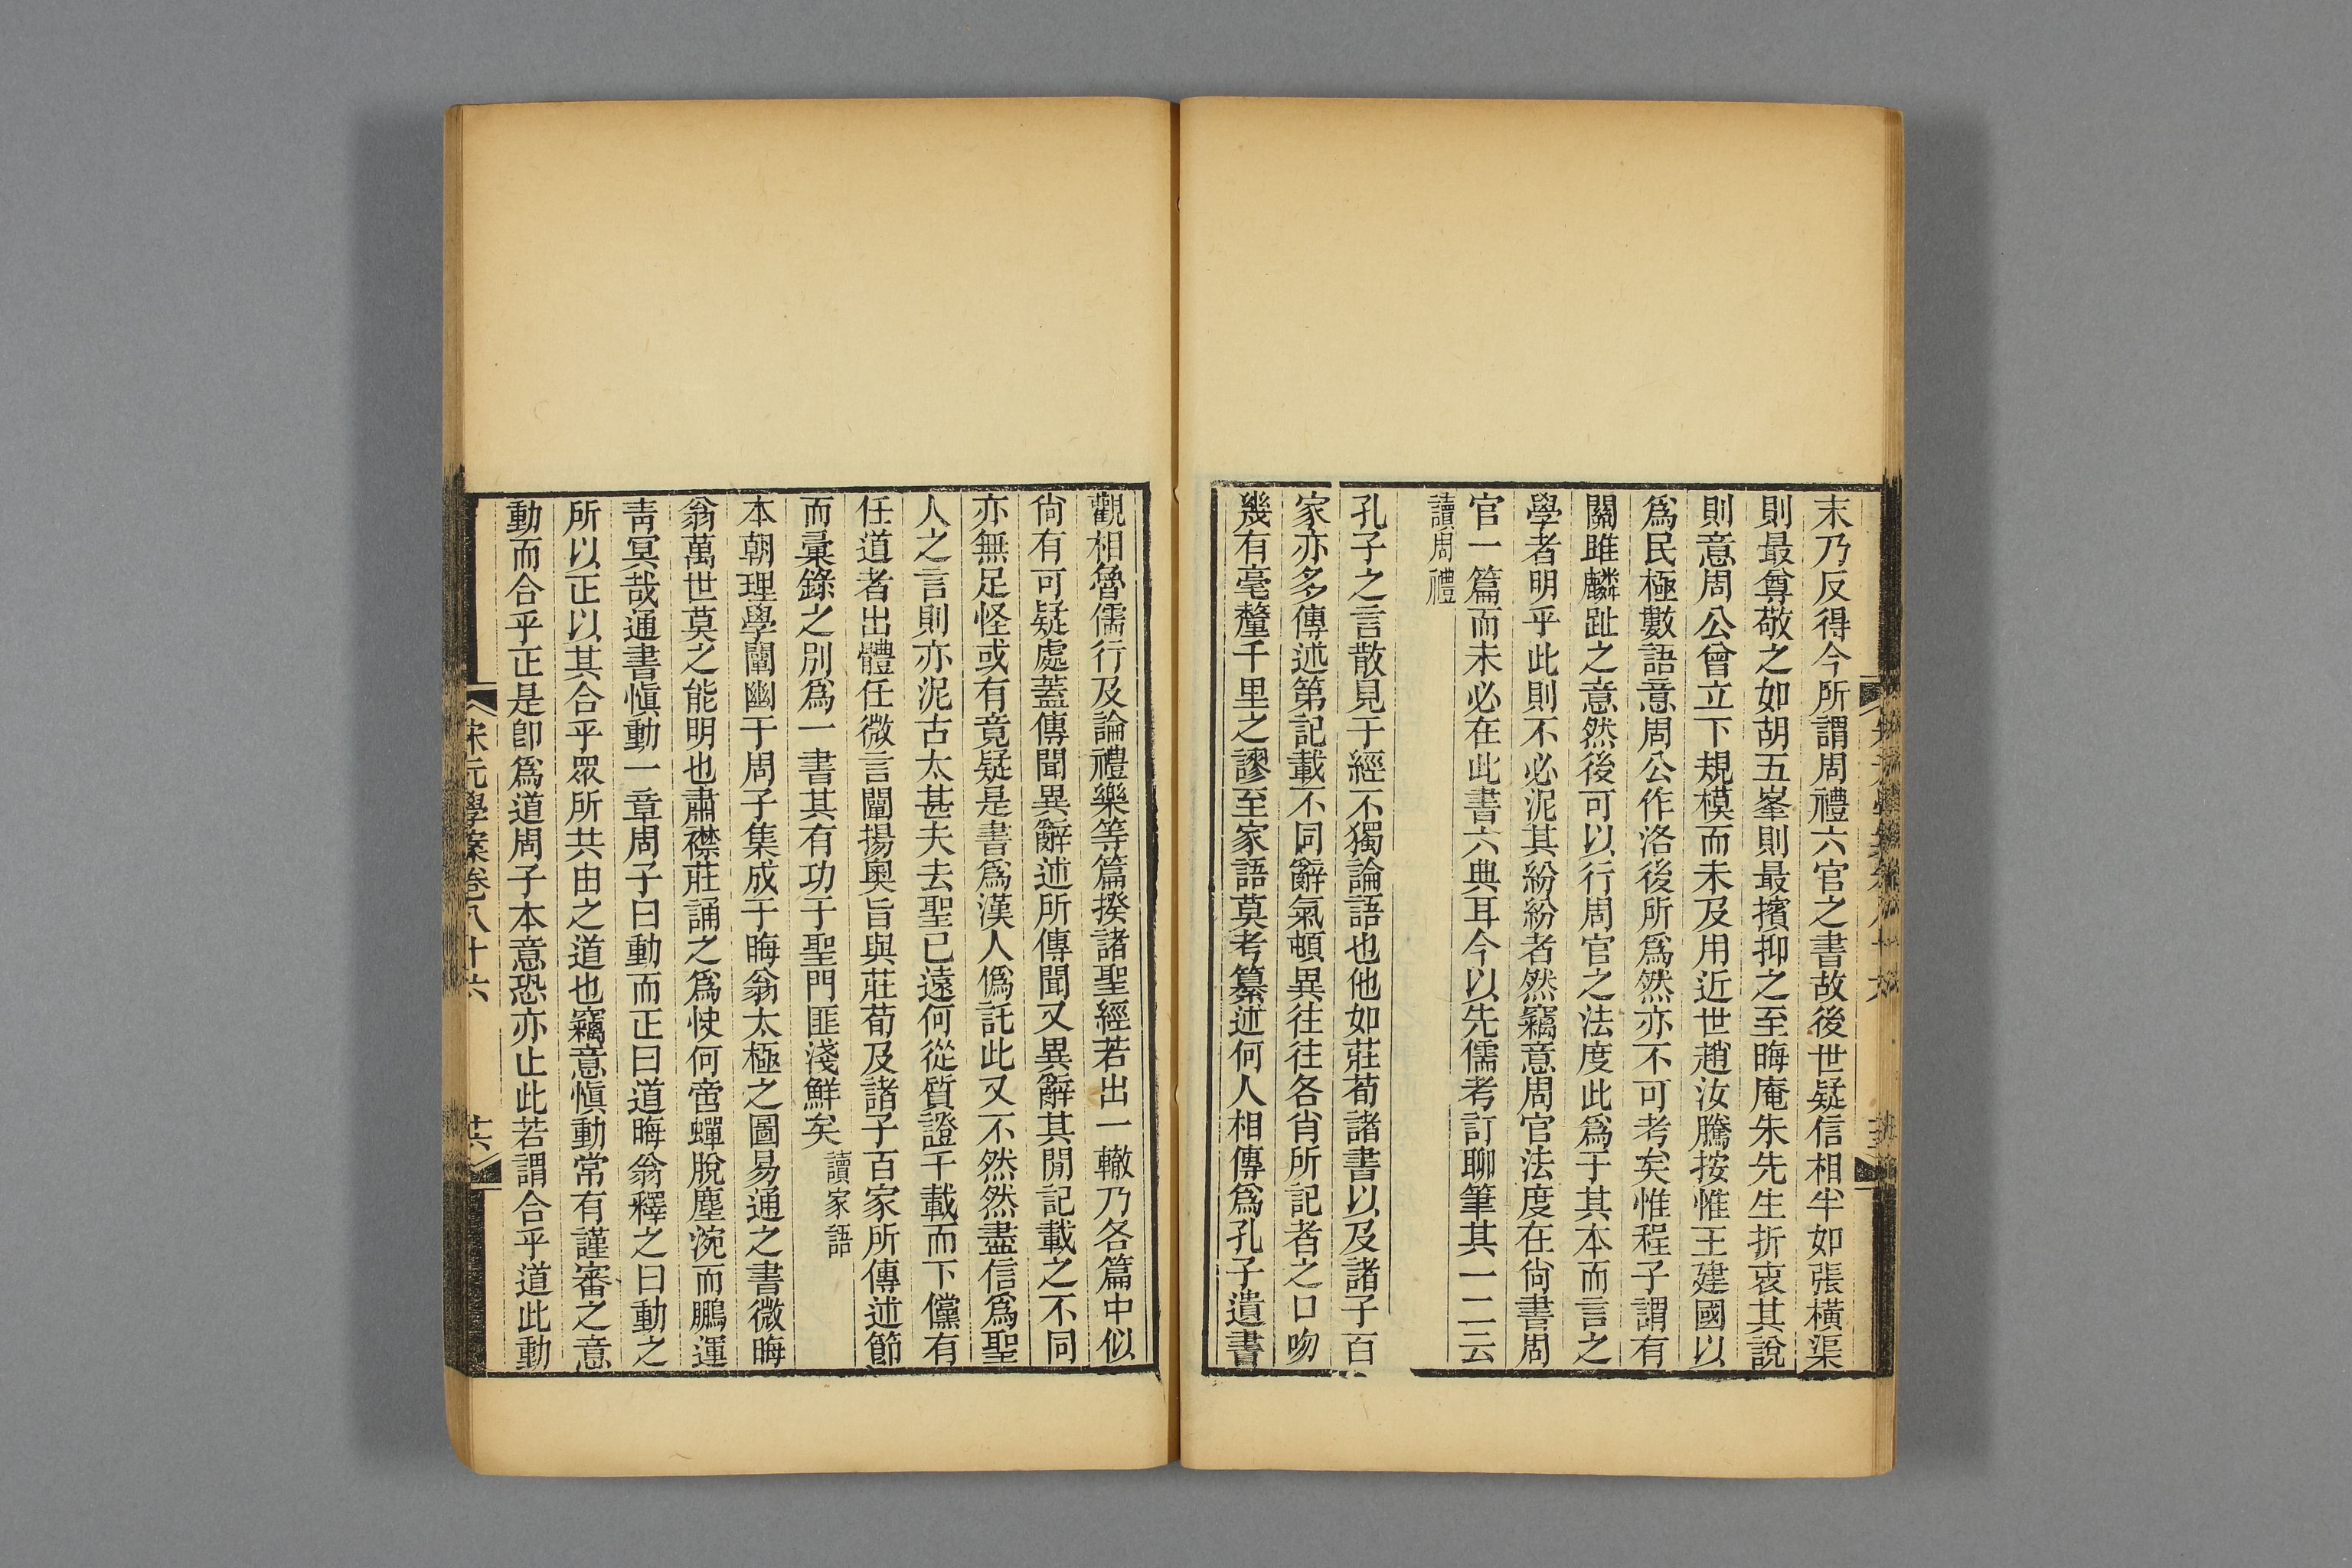 末乃反得今所謂周禮六官之書故後世疑信相半如張橫渠
則最尊敬之如胡五峯則最擯抑之至晦庵朱先生折衷其說
則意周公曾立下規模而未及用近世趙汝騰按惟王建國以
爲民極數語意周公作洛後所爲然亦不可考矣惟程子謂有
關雎麟趾之意然後可以行周官之法度此爲于其本而言之
學者明乎此則不必泥其紛紛者然竊意周官法度在尚書周
官一篇而未必在此書六典耳今以先儒考訂聊筆其一二云
讀周禮
孔子之言散見于經不獨論語也他如莊荀諸書以及諸子百
家亦多傳述第記載不同辭氣頓異往往各肖所記者之口吻
幾有毫釐千里之謬至家語莫考纂述何人相傳爲孔子遺書
觀相魯儒行及論禮樂等篇揆諸聖經若出一轍乃各篇中似
尙有可疑處蓋傳聞異辭述所傳聞又異辭其閒記載之不同
亦無足怪或有竟疑是書爲漢人僞託此又不然然盡信爲聖
人之言則亦泥古太甚夫去聖已遠何從質證千載而下儻有
任道者出體任微言闡揚奧旨與莊荀及諸子百家所傳述節
而彙錄之別爲一書其有功于聖門匪淺鮮矣讀家語
本朝理學闡幽于周子集成于晦翁太極之圖易通之書微晦
翁萬世莫之能明也肅襟莊誦之爲快何啻蟬脫塵涴而鵬運
靑冥哉通書愼動一章周子曰動而正曰道晦翁釋之曰動之
所以正以其合乎眾所共由之道也竊意愼動常有謹審之意
動而合乎正是卽爲道周子本意恐亦止此若謂合乎道此動
宋元學案卷八十六 廿六